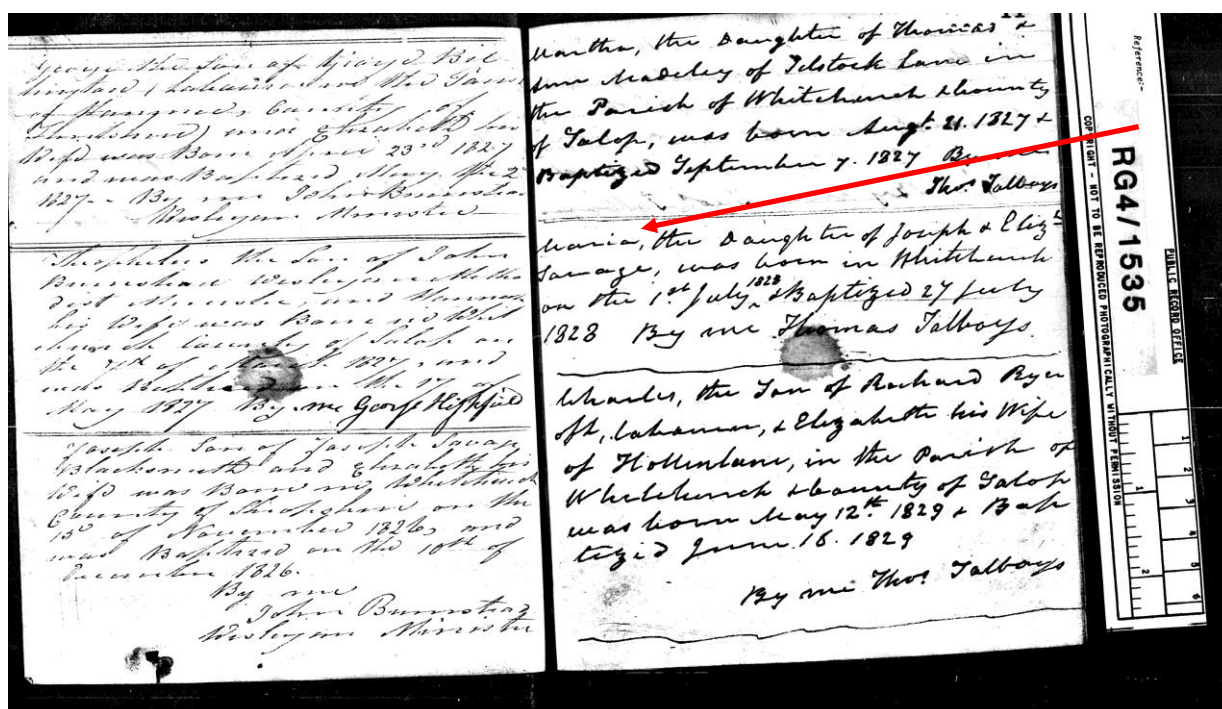 George the Son of George Bil
lington (Labourer) of the Parish
of Hanmer, County of
and Elizabeth his
Wife was Born April 23rd 1827
and was Baptized May the 2
1827. By me John Brumstead
Wesleyan Minister
Theophilus the Son of John
Wesleyan
Minister, and Hannah
his Wife was Born in Whit
church County of Salop on
the 7th of March 1827, and
was on the 17 of
May 1827 By me George Highfield
Joseph Son of Joseph Savage
Blacksmith and Elizabeth his
Wife was Born in Whitchurch
County of Shropshire on the
15 of November 1826, and
was Baptized on the 10th of
December 1826.
By me
John
Wesleyan Minister
11
Martha, the Daughter of Thomas &
Ann Madeley of Tilstock Lane in
the Parish of Whitchurch & County
of Salop, was born Augt. 21. 1827 &
Baptized September 7. 1827 By me
Thos. Talboys
Maria, the Daughter of Joseph & Elizth
Savage, was born in Whitchurch
on the 1st July 1828 & Baptized 27 July
1828 By me Thomas Talboys.
Charles, the Son of Richard Ryer
oft, Labourer, & Elizabeth his Wife
of Hollinlane, in the Parish of
Whitchurch & County of Salop
was born May 12th 1829 & Bap
tized June 16. 1829
By me Thos Talboys
Reference:-
RG4/1535
PUBLIC RECORD OFFICE
COPYRIGHT - NOT TO BE REPRODUCED PHOTOGRAPHICALLY WITHOUT PERMISSION
1
2
3
4
5
6
1
2